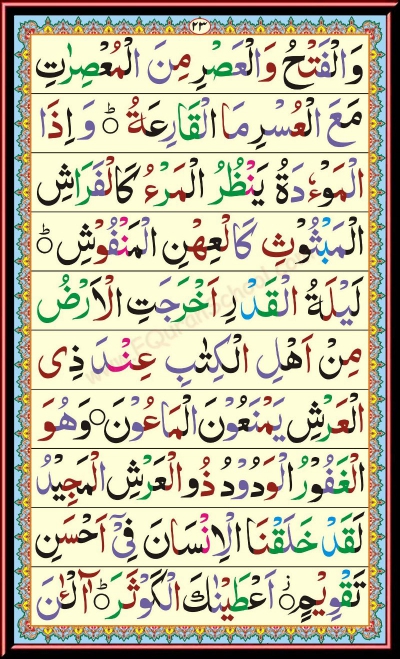 ٢٣
وَالْفَتْحُ وَالْعَصْرِ مِنَ الْمُعْصِرٰتِ
مَعَ الْعُسْرِ مَا الْقَارِعَةُ ؕ وَ اِذَا
الْمَوْءٗدَةُ يَنْظُرُ الْمَرْءُ كَالْفَرَاشِ
الْمَبْثُوْثِ كَالْعِهْنِ الْمَنْفُوْشِ ؕ
لَيْلَةُ الْقَدْرِ اَخْرَجَتِ الْاَرْضُ
مِنْ اَهْلِ الْكِتٰبِ عِنْدَ ذِى
الْعَرْشِ يَمْنَعُوْنَ الْمَاعُوْنَ ○ وَهُوَ
الْغَفُوْرُ الْوَدُوْدُ ذُو الْعَرْشِ الْمَجِيْدُ
لَقَدْ خَلَقْنَا الْاِنْسَانَ فِىْۤ اَحْسَنِ
تَقْوِيْمٍ ○ اَعْطَيْنٰكَ الْكَوْثَرَ ؕ آٰلْـٰٔنَ